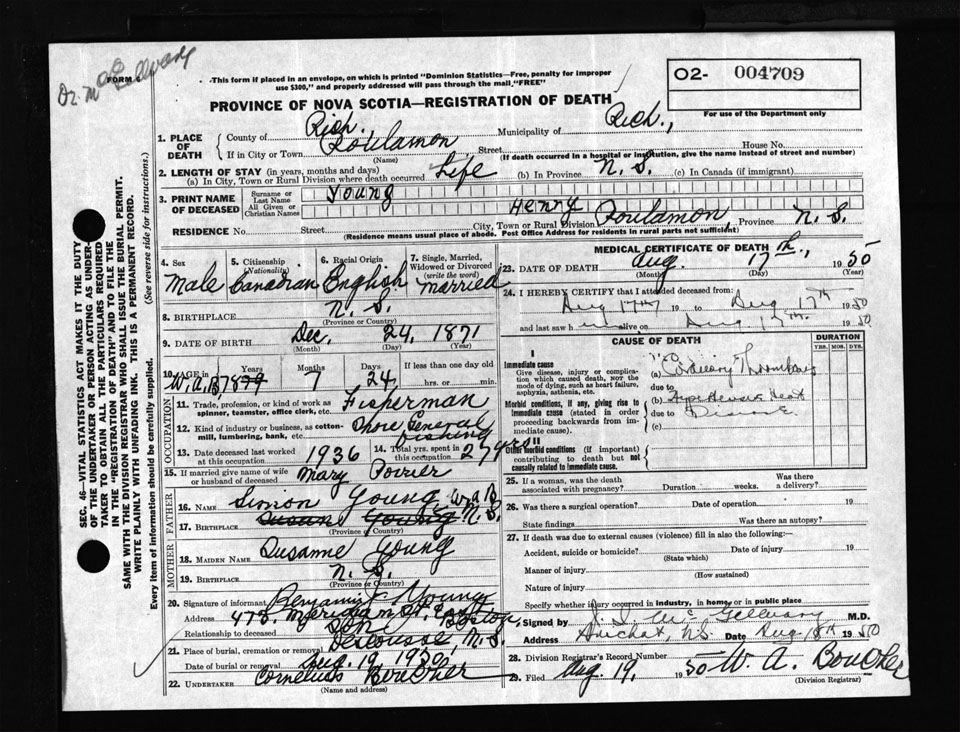 FORM 6
Dr. Mc
This form if placed in an envelope, on which is printed "Dominion Statistics—Free, penalty for improper
use $300," and properly addressed will pass through the mail, "FREE"
O2- 004709
For use of the Department only
PROVINCE OF NOVA SCOTIA—REGISTRATION OF DEATH
1. PLACE OF DEATH County of Rich. Municipality of Rich.,
If in City or Town Poulamon Street House No.
(Name) (If death occurred in a hospital or institution, give the name instead of street and number)
2. LENGTH OF STAY (in years, months and days)
(a) In City, Town or Rural Division where death occurred Life (b) In Province N. S. (c) In Canada (if immigrant)
3. PRINT NAME OF DECEASED Surname or Last Name Young
All Given or Christian Names Henry
RESIDENCE No. Street City, Town or Rural Division Poulamon, Province N. S.
(Residence means usual place of abode. Post Office Address for residents in rural parts not sufficient)
4. Sex 5. Citizenship (Nationality) 6. Racial Origin 7. Single, Married, Widowed or Divorced (write the word)
Male Canadian English Married
8. BIRTHPLACE N. S.
(Province or Country)
9. DATE OF BIRTH Dec. 24, 1871
(Month) (Day) (Year)
10. AGE in Years Months Days If less than one day old
W.A.B. 78 7 24 hrs. or min.
OCCUPATION
11. Trade, profession or kind of work as spinner, teamster, office clerk, etc. Fisherman
12. Kind of industry or business, as cotton-mill, lumbering, bank, etc. Shore General fishing
13. Date deceased last worked at this occupation 1936 14. Total yrs. spent in this occupation yrs
15. If married give name of wife or husband of deceased Mary Poirier
FATHER
16. NAME Simon Young W.A.B.
17. BIRTHPLACE Susan Young N. S.
(Province or Country)
MOTHER
18. MAIDEN NAME Susanne Young
19. BIRTHPLACE N. S.
(Province or Country)
20. Signature of informant Benjamin J Young
Address 473 Meridian St. East Boston
Relationship to deceased Son
21. Place of burial, cremation or removal Descousse, N. S.
Date of burial or removal Aug. 19 1950
22. UNDERTAKER Cornelius Boucher
(Name and address)
MEDICAL CERTIFICATE OF DEATH
23. DATE OF DEATH Aug. 17th, 1950
(Month) (Day) (Year)
24. I HEREBY CERTIFY that I attended deceased from:
Aug 17th 19 to Aug 17th 1950
and last saw h im alive on Aug. 17th. 1950
CAUSE OF DEATH DURATION
YRS. MOS. DYS.
I
Immediate cause
Give disease, injury or complication which caused death, NOT the mode of dying, such as heart failure, asphyxia, asthenia, etc.
(a) Coronary Thrombosis
due to
Morbid conditions, if any, giving rise to immediate cause (stated in order proceeding backwards from immediate cause).
(b) Hypertensive Heart
due to Disease
(c)
II
Other morbid conditions (if important) contributing to death but not causally related to immediate cause.
25. If a woman, was the death associated with pregnancy? Duration weeks. Was there a delivery?
26. Was there a surgical operation? Date of operation. 19
State findings Was there an autopsy?
27. If death was due to external causes (violence) fill in also the following:
Accident, suicide or homicide? Date of injury 19
(State which)
Manner of injury
(How sustained)
Nature of injury
Specify whether injury occurred in industry, in home, or in public place
Signed by M.D.
Address Arichat, N.S. Date Aug 18th 1950
28. Division Registrar's Record Number
29. Filed Aug. 19, 1950 W. A. Boucher
(Division Registrar)
SEC. 46—VITAL STATISTICS ACT MAKES IT THE DUTY
OF THE UNDERTAKER OR PERSON ACTING AS UNDERTAKER TO OBTAIN ALL THE PARTICULARS REQUIRED
IN THE "REGISTRATION OF DEATH" AND TO FILE THE
SAME WITH THE DIVISION REGISTRAR WHO SHALL ISSUE THE BURIAL PERMIT.
WRITE PLAINLY WITH UNFADING INK. THIS IS A PERMANENT RECORD.
Every item of information should be carefully supplied. (See reverse side for instructions.)